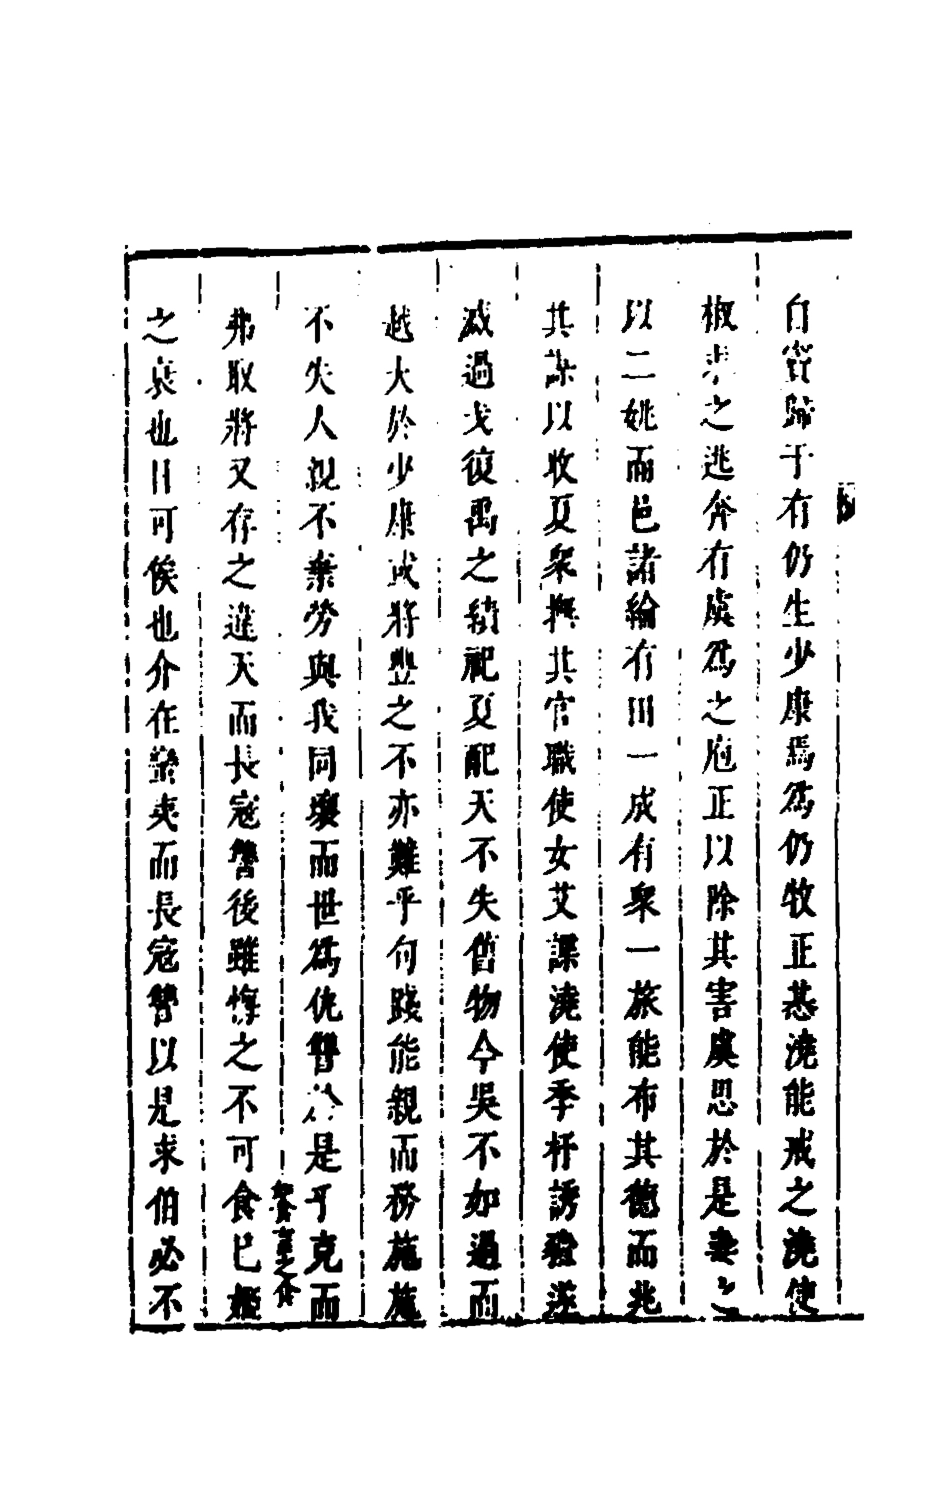 自竇歸于有仍生少康焉爲仍牧正惎澆能戒之澆使
椒求之逃奔有虞爲之庖正以除其害虞思於是妻之
以二姚而邑諸綸有田一成有衆一旅能布其德而兆
其謀以收夏衆撫其官職使女艾諜澆使季杼誘豷遂
滅過戈復禹之績祀夏配天不失舊物今吳不如過而
越大於少康或將豐之不亦難乎句踐能親而務施施
不失人親不棄勞與我同壤而世爲仇讐於是乎克而
弗取將又存之違天而長寇讐後雖悔之不可食已姬
之衰也日可俟也介在蠻夷而長寇讐以是求伯必不